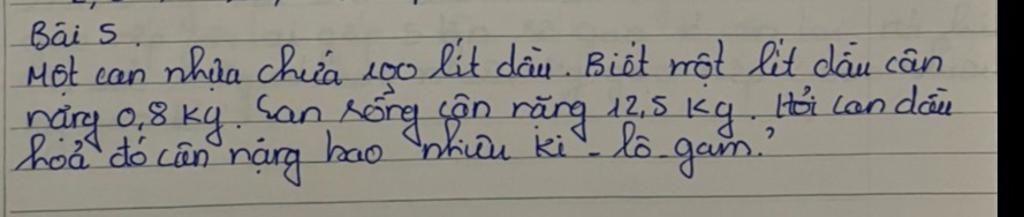 Bài 5.
Một can nhựa chứa 100 lít dầu. Biết một lít dầu cân
nặng 0,8 kg. Can rỗng cân nặng 12,5 kg. Hỏi can dầu
hoả đó cân nặng bao nhiêu ki-lô-gam?